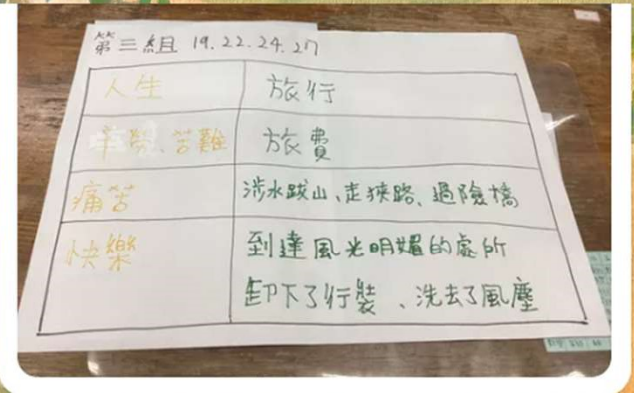 第三組 19.22.24.27
人生 旅行
辛勞、苦難 旅費
痛苦 涉水跋山、走狹路、過險橋
快樂 到達風光明媚的處所
卸下了行裝、洗去了風塵